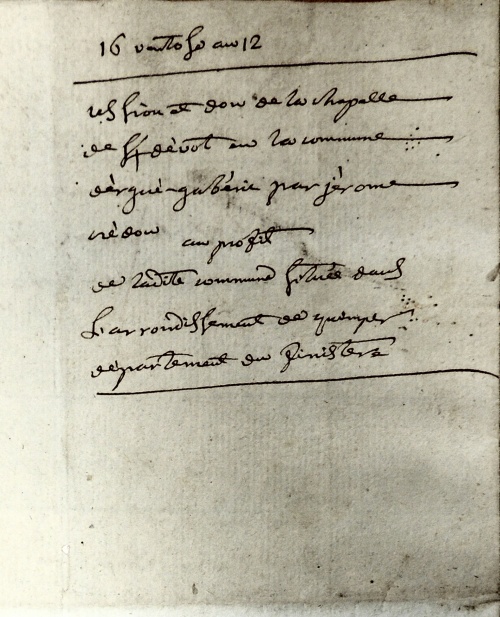 16 vantose an 12
cession et don de la chapelle
de st dévot en la commune
dèrgué-gabéric par jérome
crédou au profit
de ladite commune située dans
L'arrondissement de quimper
département du finistere